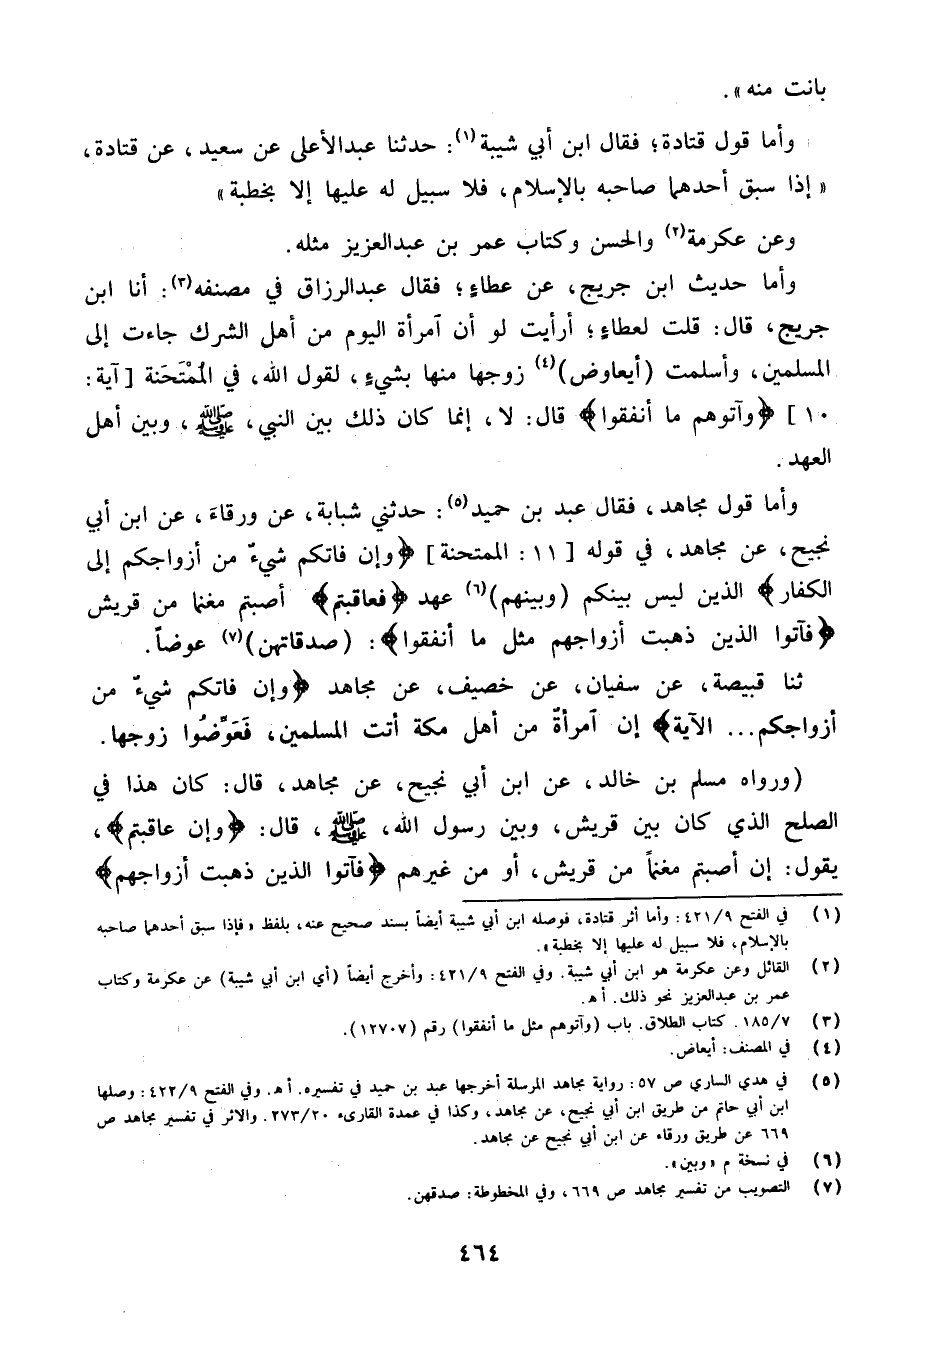 بانت منه».
وأما قول قتادة؛ فقال ابن أبي شيبة(١): حدثنا عبدالأعلى عن سعيد، عن قتادة،
«إذا سبق أحدهما صاحبه بالإسلام، فلا سبيل له عليها إلا بخطبة»
وعن عكرمة(٢) والحسن وكتاب عمر بن عبدالعزيز مثله.
وأما حديث ابن جريج، عن عطاءٍ؛ فقال عبدالرزاق في مصنفه(٣): أنا ابن
جريج، قال: قلت لعطاءٍ؛ أرأيت لو أن آمرأة اليوم من أهل الشرك جاءت إلى
المسلمين، وأسلمت (أيعاوض)(٤) زوجها منها بشيءٍ، لقول الله، في المُمْتَحَنة [آية:
١٠] ﴿وآتوهم ما أنفقوا﴾ قال: لا، إنما كان ذلك بين النبي، ﷺ، وبين أهل
العهد.
وأما قول مجاهد، فقال عبد بن حميد(٥): حدثني شبابة، عن ورقاءَ، عن ابن أبي
نجيح، عن مجاهد، في قوله [١١: الممتحنة] ﴿وإن فاتكم شيءٌ من أزواجكم إلى
الكفار﴾ الذين ليس بينكم (وبينهم)(٦) عهد ﴿فعاقبتم﴾ أصبتم مغنما من قريش
﴿فآتوا الذين ذهبت أزواجهم مثل ما أنفقوا﴾: (صدقاتهن)(٧) عوضاً.
ثنا قبيصة، عن سفيان، عن خصيف، عن مجاهد ﴿وإن فاتكم شيءٌ من
أزواجكم... الآية﴾ إن آمرأةً من أهل مكة أتت المسلمين، فَعَوِّضُوا زوجها.
(ورواه مسلم بن خالد، عن ابن أبي نجيح، عن مجاهد، قال: كان هذا في
الصلح الذي كان بين قريش، وبين رسول الله، ﷺ، قال: ﴿وإن عاقبتم﴾،
يقول: إن أصبتم مغنماً من قريش، أو من غيرهم ﴿فآتوا الذين ذهبت أزواجهم﴾
(١) في الفتح ٤٢١/٩: وأما أثر قتادة، فوصله ابن أبي شيبة أيضاً بسند صحيح عنه، بلفظ «فإذا سبق أحدهما صاحبه
بالإسلام، فلا سبيل له عليها إلا بخطبة».
(٢) القائل وعن عكرمة هو ابن أبي شيبة. وفي الفتح ٤٢١/٩: وأخرج أيضاً (أي ابن أبي شيبة) عن عكرمة وكتاب
عمر بن عبدالعزيز نحو ذلك. أ هـ.
(٣) ١٨٥/٧. كتاب الطلاق. باب (وآتوهم مثل ما أنفقوا) رقم (١٢٧٠٧).
(٤) في المصنف: أيعاض.
(٥) في هدي الساري ص ٥٧: رواية مجاهد المرسلة أخرجها عبد بن حميد في تفسيره. أ هـ. وفي الفتح ٤٢٢/٩: وصلها
ابن أبي حاتم من طريق ابن أبي نجيح، عن مجاهد، وكذا في عمدة القارىء ٢٧٣/٢٠. والاثر في تفسير مجاهد ص
٦٦٩ عن طريق ورقاء عن ابن أبي نجيح عن مجاهد.
(٦) في نسخة م «وبين».
(٧) التصويب من تفسير مجاهد ص ٦٦٩، وفي المخطوطة: صدقهن.
٤٦٤